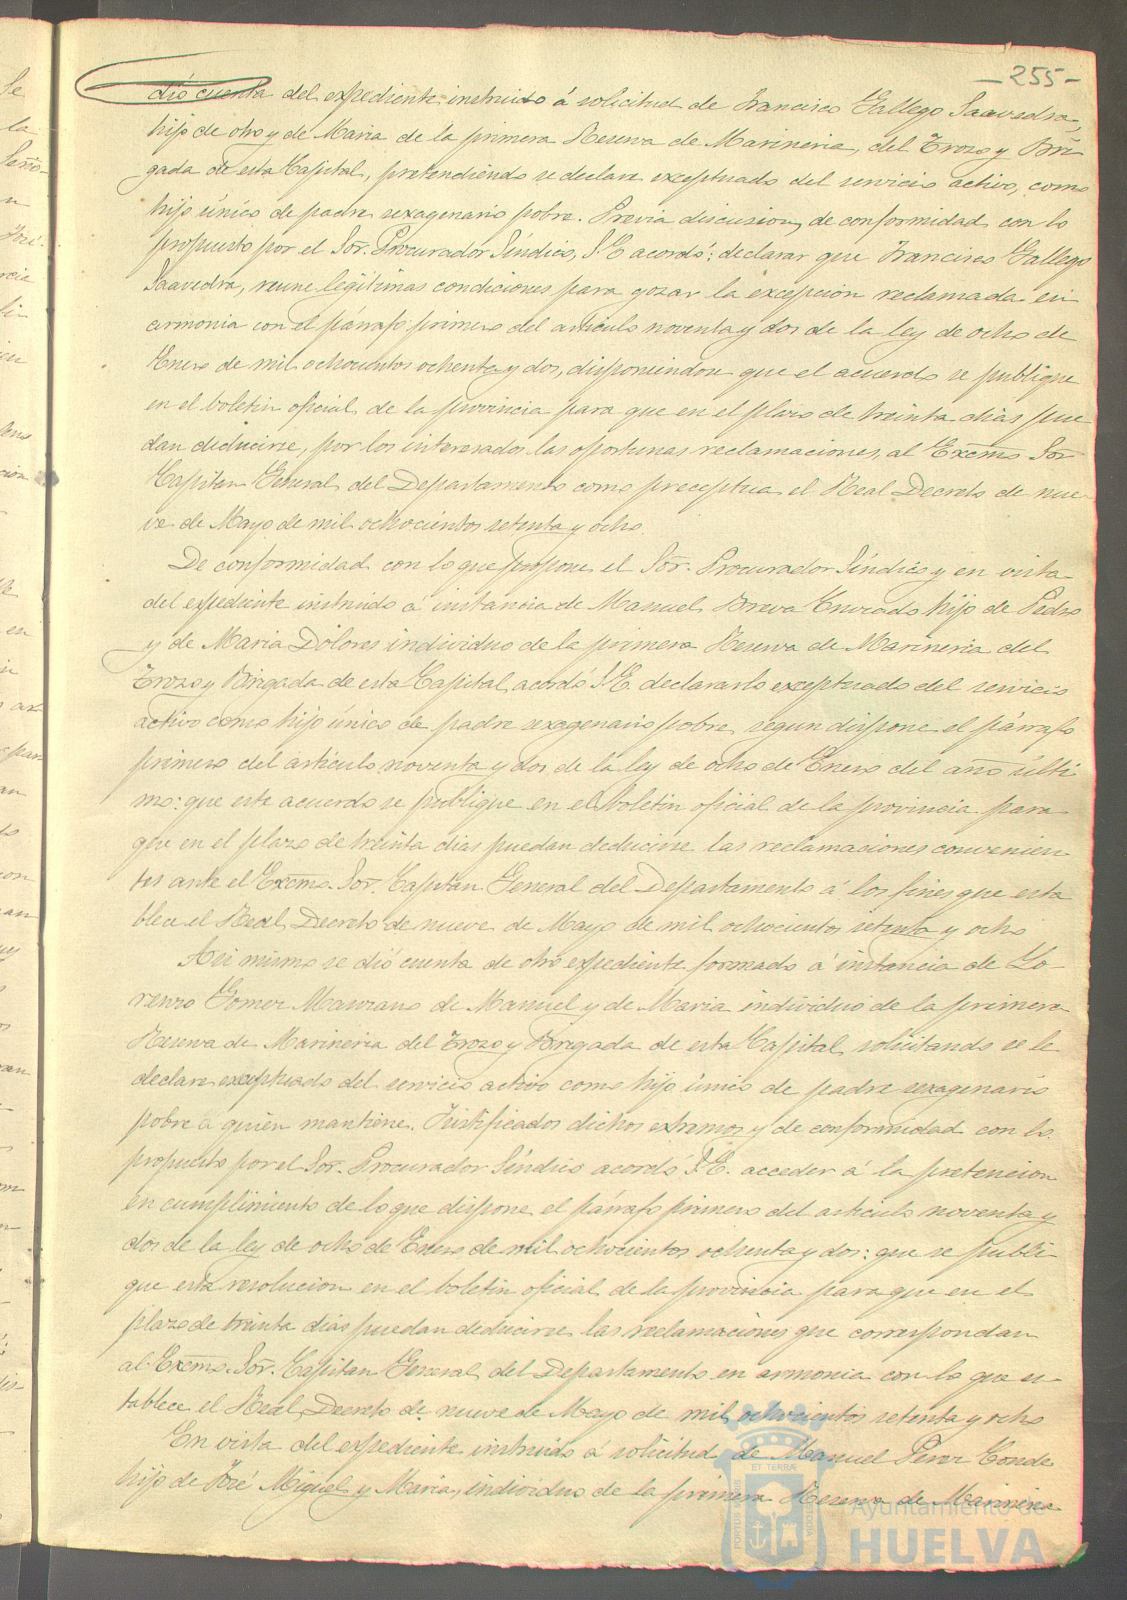 -255-
dió cuenta del expediente instruido á solicitud de Francisco Gallego Saavedra,
hijo de otro y de Maria de la primera Reserva de Marineria, del Trozo y Bri
gada de esta Capital, pretendiendo se declare exceptuado del servicio activo, como
hijo único de padre sexagenario pobre. Previa discusion, de conformidad con lo
propuesto por el Sor. Procurador Síndico, S. E. acordó: declarar que Francisco Gallego
Saavedra, reune legítimas condiciones para gozar la excepción reclamada en
armonia con el párrafo primero del artículo noventa y dos de la ley de ocho de
Enero de mil ochocientos ochenta y dos, disponiendose que el acuerdo se publique
en el boletin oficial de la provincia para que en el plazo de treinta dias pue
dan deducirse, por los interesados las oportunas reclamaciones, al Excmo Sor
Capitan General del Departamento como preceptua el Real Decreto de nue-
ve de Mayo de mil ochocientos setenta y ocho.
De conformidad con lo que propone el Sor. Procurador Síndico y en vista
del expediente instruido á instancia de Manuel Breva hijo de Pedro
y de Maria Dolores individuo de la primera Reserva de Marineria del
Trozo y Brigada de esta Capital, acordó S. E. declararlo exceptuado del servicio
activo como hijo único de padre sexagenario pobre, segun dispone el párrafo
primero del artículo noventa y dos de la ley de ocho de Enero del año últi
mo: que este acuerdo se publique en el boletin oficial de la provincia para
que en el plazo de treinta dias puedan deducirse las reclamaciones convenien
tes ante el Excmo. Sor. Capitan General del Departamento á los fines que esta
blece el Real Decreto de nueve de Mayo de mil ochocientos setenta y ocho
Asi mismo se dió cuenta de otro expediente formado á instancia de Lo-
renzo Gomez Manzano de Manuel y de Maria individuo de la primera
Reserva de Marineria del Trozo y Brigada de esta Capital, solicitando se le
declare exceptuado del servicio activo como hijo único de padre sexagenario
pobre á quien mantiene. Justificados dichos extremos y de conformidad con lo
propuesto por el Sor. Procurador Síndico acordó S. E. acceder á la pretencion
en cumplimiento de lo que dispone el párrafo primero del artículo noventa y
dos de la ley de ocho de Enero de mil ochocientos ochenta y dos: que se publi
que esta resolucion en el boletin oficial de la provincia para que en el
plazo de treinta dias puedan deducirse las reclamaciones que correspondan
al Excmo. Sor. Capitan General del Departamento en armonia con lo que es-
tablece el Real Decreto de nueve de Mayo de mil ochocientos setenta y ocho
En vista del expediente instruido á solicitud de Manuel Perez Conde
hijo de José Miguel y Maria, individuo de la primera Reserva de Marineria
Ayuntamiento de
HUELVA